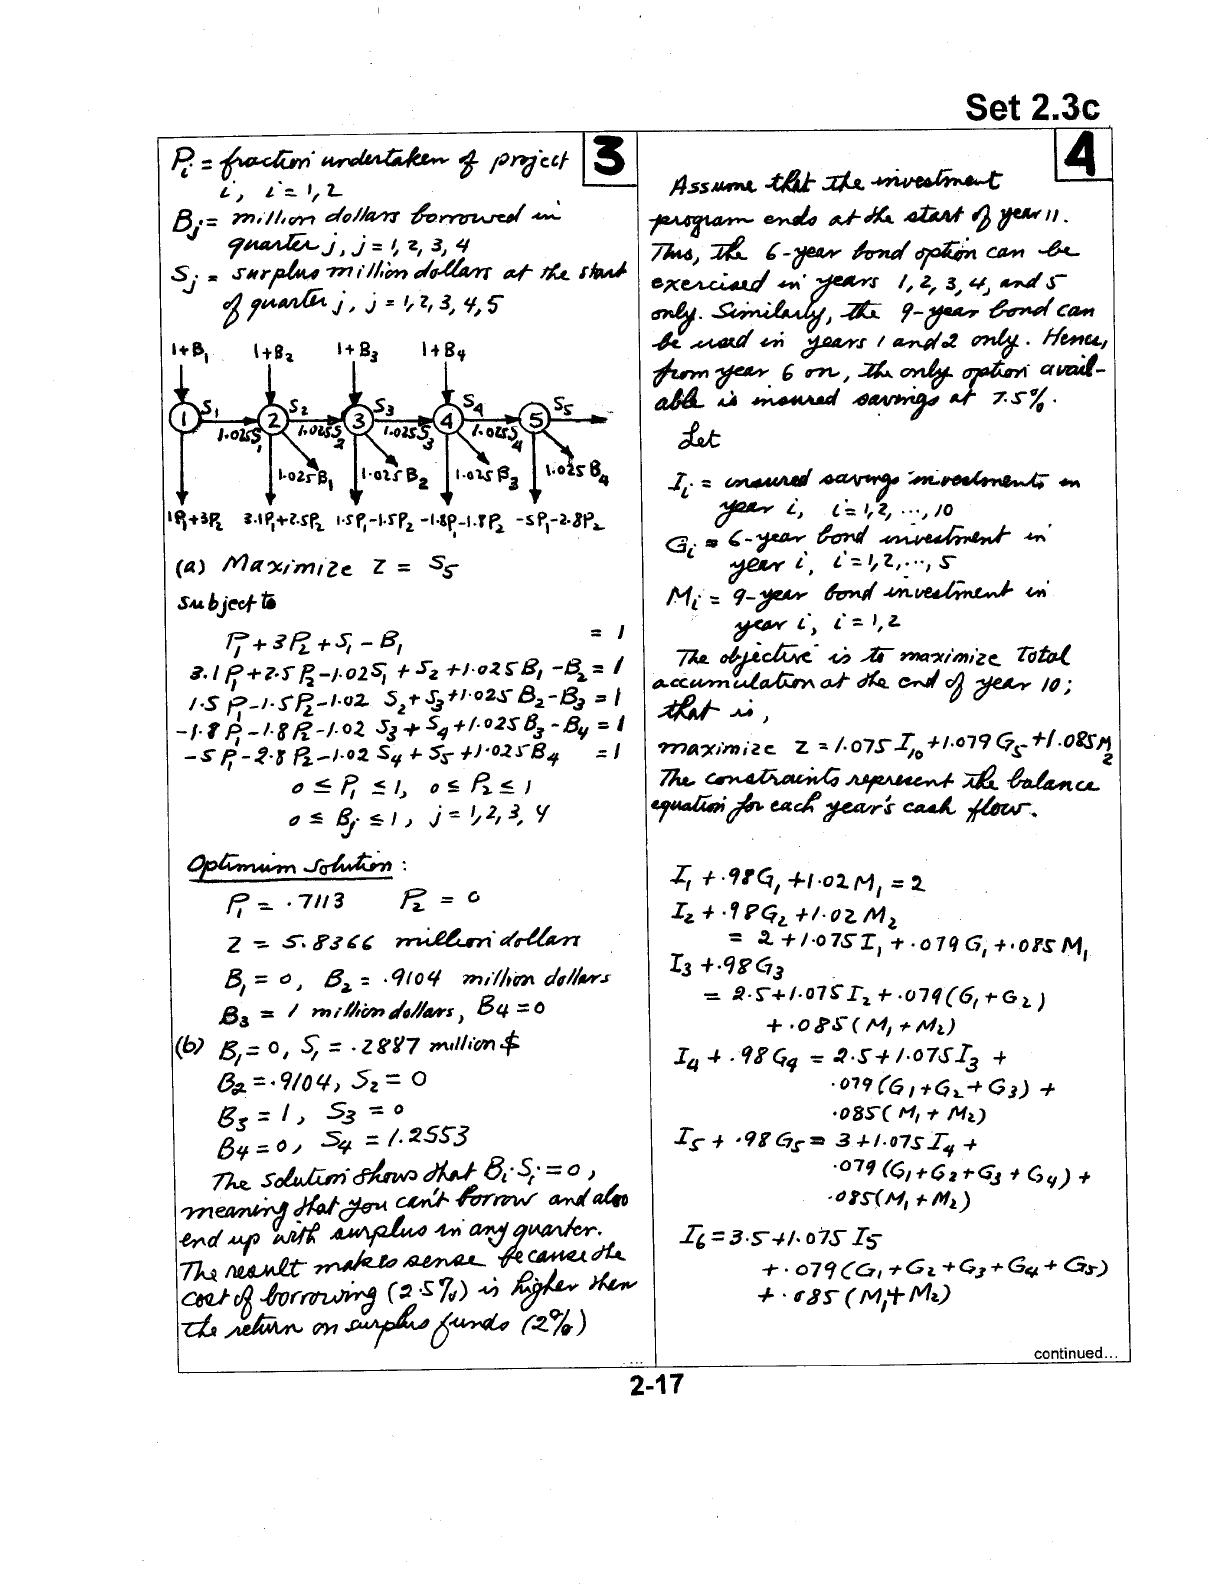 Set 2.3c
3
Pi = fraction undertaken of project
i, i = 1, 2
Bj = million dollars borrowed in
quarter j, j = 1, 2, 3, 4
Sj = surplus million dollars at the start
of quarter j, j = 1, 2, 3, 4, 5
1+B1 1+B2 1+B3 1+B4
1 S1 2 S2 3 S3 4 S4 5 S5
1.02S1 1.02S2 1.02S3 1.02S4
1.025B1 1.025B2 1.025B3 1.025B4
1P1+3P2 3.1P1+2.5P2 1.5P1-1.5P2 -1.8P1-1.8P2 -5P1-2.8P2
(a) Maximize Z = S5
subject to
P1 + 3P2 + S1 - B1 = 1
3.1P1 + 2.5P2 - 1.02S1 + S2 + 1.025B1 - B2 = 1
1.5P1 - 1.5P2 - 1.02 S2 + S3 + 1.025 B2 - B3 = 1
-1.8P1 - 1.8P2 - 1.02 S3 + S4 + 1.025 B3 - B4 = 1
-5P1 - 2.8P2 - 1.02 S4 + S5 + 1.025B4 = 1
0 ≤ P1 ≤ 1, 0 ≤ P2 ≤ 1
0 ≤ Bj ≤ 1, j = 1, 2, 3, 4
Optimum Solution:
P1 = .7113 P2 = 0
Z = 5.8366 million dollars
B1 = 0, B2 = .9104 million dollars
B3 = 1 million dollars, B4 = 0
(b) B1 = 0, S1 = .2887 million $
B2 = .9104, S2 = 0
B3 = 1, S3 = 0
B4 = 0, S4 = 1.2553
The solution shows that Bi·Si = 0,
meaning that you can't borrow and also
end up with surplus in any quarter.
The result makes sense because the
cost of borrowing (2.5%) is higher then
the return on surplus funds (2%)
4
Assume that the investment
program ends at the start of year 11.
Thus, the 6-year bond option can be
exercised in years 1, 2, 3, 4, and 5
only. Similarly, the 9-year bond can
be used in years 1 and 2 only. Hence,
from year 6 on, the only option avail-
able is insured savings at 7.5%.
Let
Ii = insured savings investments in
year i, i = 1, 2, ..., 10
Gi = 6-year bond investment in
year i, i = 1, 2, ..., 5
Mi = 9-year bond investment in
year i, i = 1, 2
The objective is to maximize total
accumulation at the end of year 10;
that is,
maximize Z = 1.075 I10 + 1.079 G5 + 1.085 M2
The constraints represent the balance
equation for each year's cash flow.
I1 + .98G1 + 1.02 M1 = 2
I2 + .98G2 + 1.02 M2
= 2 + 1.075 I1 + .079 G1 + .085 M1
I3 + .98G3
= 2.5 + 1.075 I2 + .079(G1 + G2)
+ .085(M1 + M2)
I4 + .98 G4 = 2.5 + 1.075 I3 +
.079(G1 + G2 + G3) +
.085(M1 + M2)
I5 + .98 G5 = 3 + 1.075 I4 +
.079(G1 + G2 + G3 + G4) +
.085(M1 + M2)
I6 = 3.5 + 1.075 I5
+ .079(G1 + G2 + G3 + G4 + G5)
+ .085(M1 + M2)
continued...
2-17